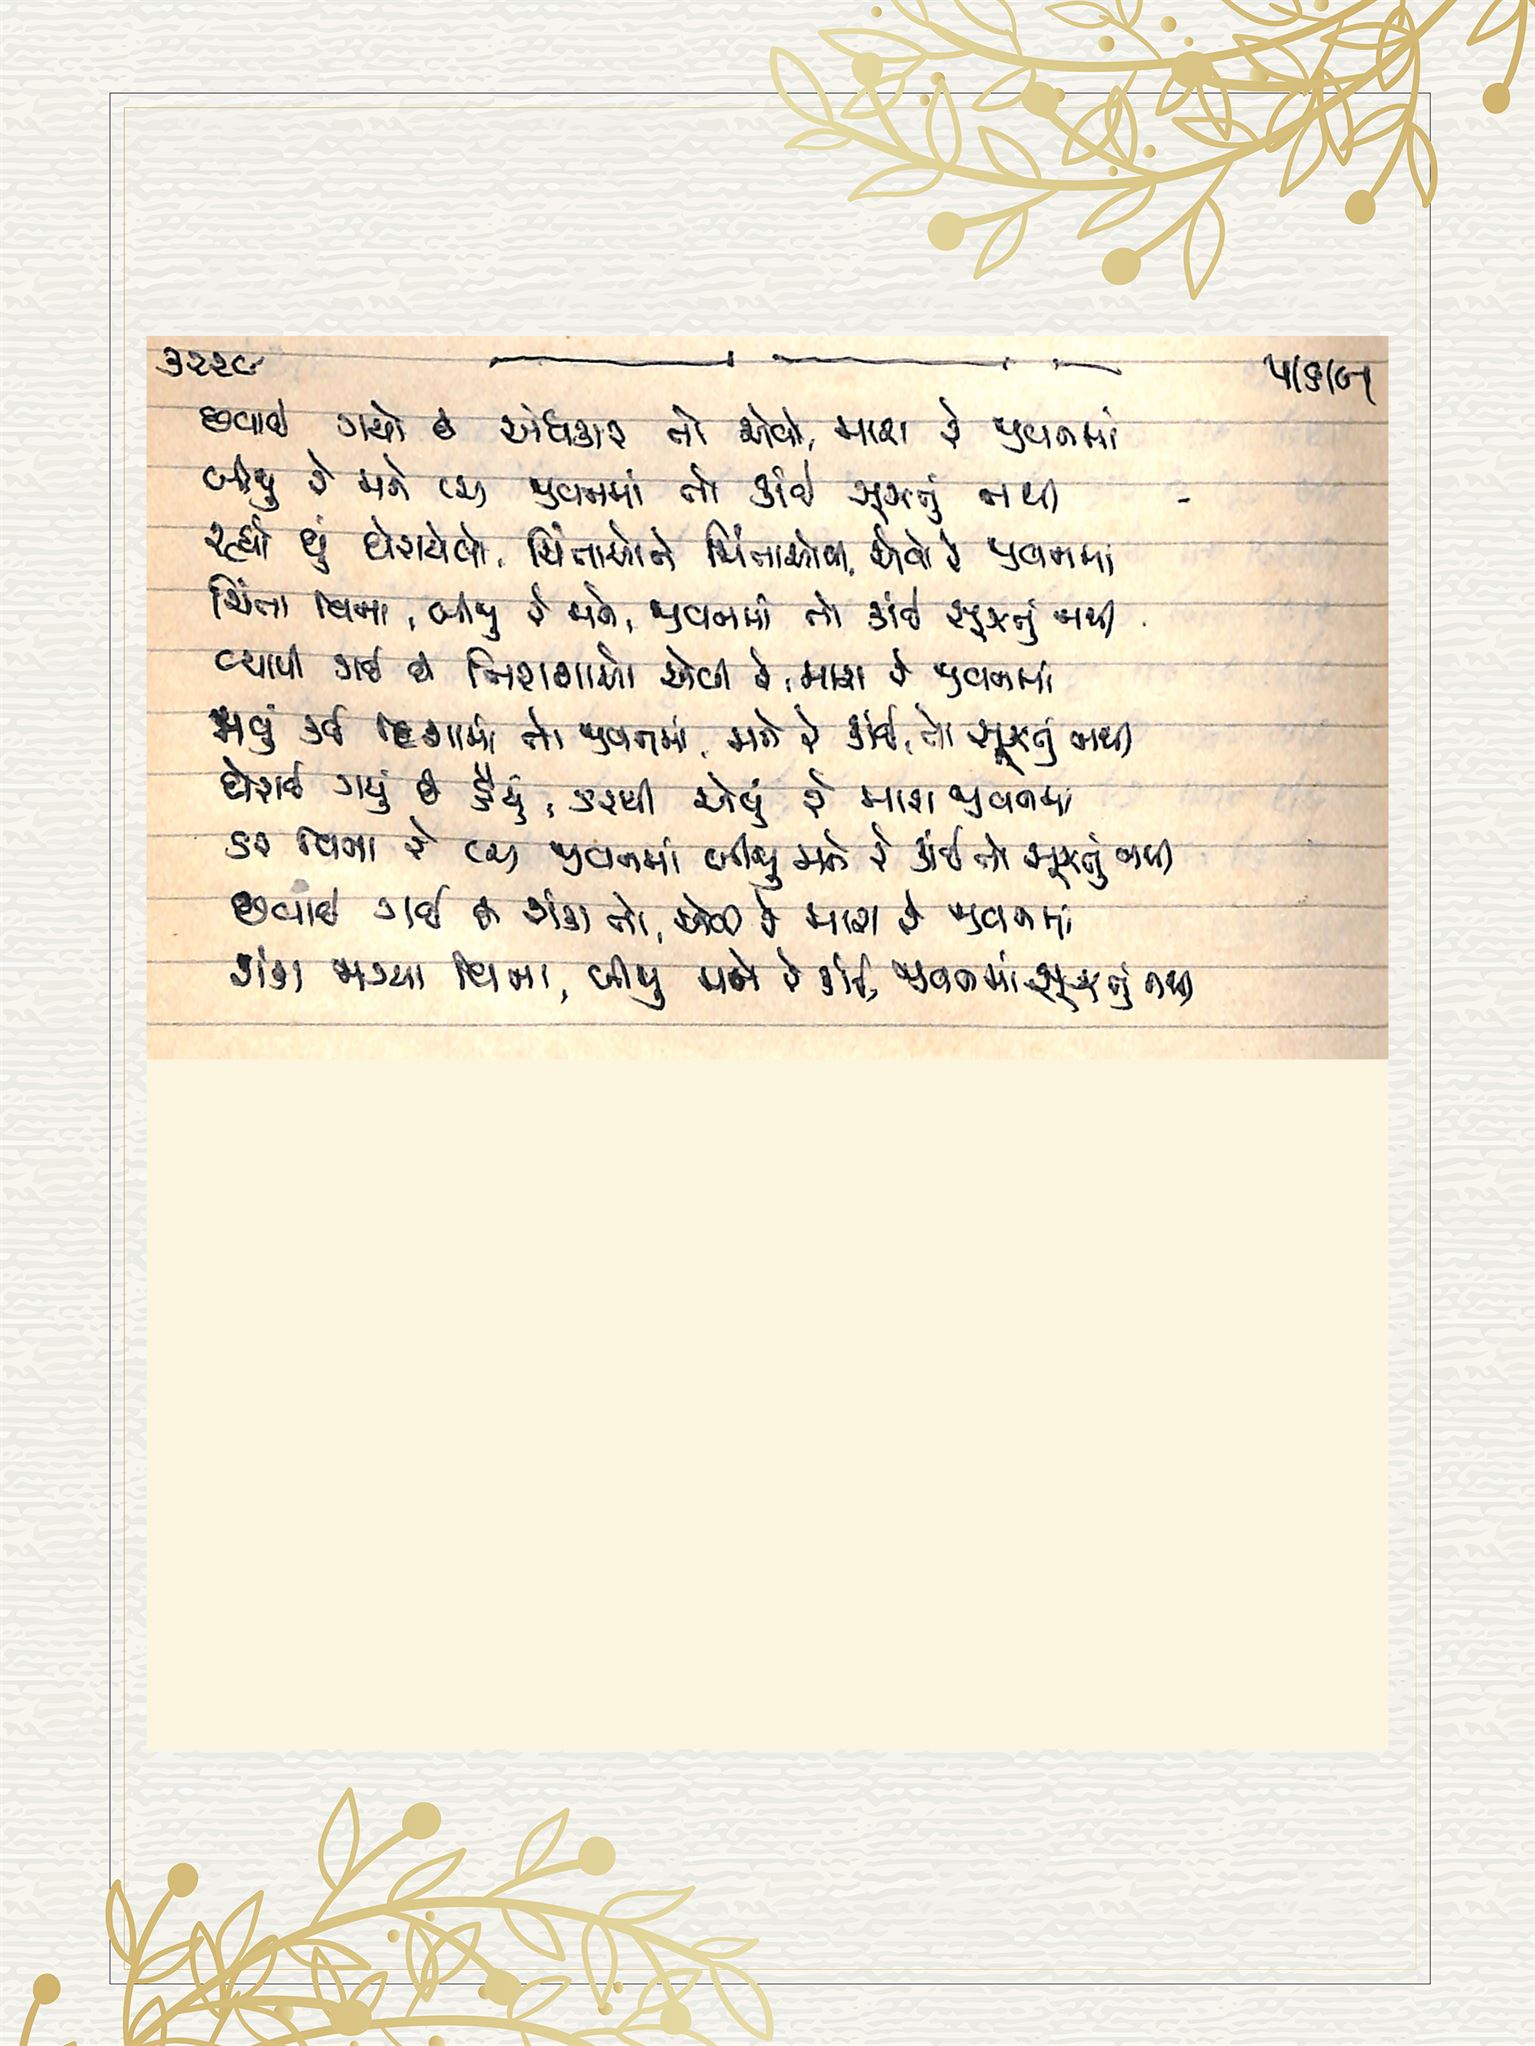 ૩૨૨૯
૫/૬/૯૧
છવાઈ ગયો છે અંધકાર તો એવો, મારા રે જીવનમાં
બીજુ રે મને ત્યાં જીવનમાં તો કાંઈ સૂઝતું નથી
રહ્યો છું ઘેરાયેલો, ચિંતાઓને ચિંતાઓથી, એવો રે જીવનમાં
ચિંતા વિના, બીજુ રે મને, જીવનમાં તો કાંઈ સૂઝતું નથી
વ્યાપી ગઈ છે નિરાશાઓ એવી રે, મારા રે જીવનમાં
જાવું કઈ દિશામાં તો જીવનમાં, મને રે કાંઈ, તો સૂઝતું નથી
ઘેરાઈ ગયું છે હૈયું, ડરથી એવું રે મારા જીવનમાં
ડર વિના રે ત્યાં જીવનમાં બીજુ મને રે કાંઈ તો સૂઝતું નથી
છવાઈ ગઈ છે શંકા તો, એવી રે મારા રે જીવનમાં
શંકા જાગ્યા વિના, બીજુ મને રે કાંઈ, જીવનમાં સૂઝતું નથી